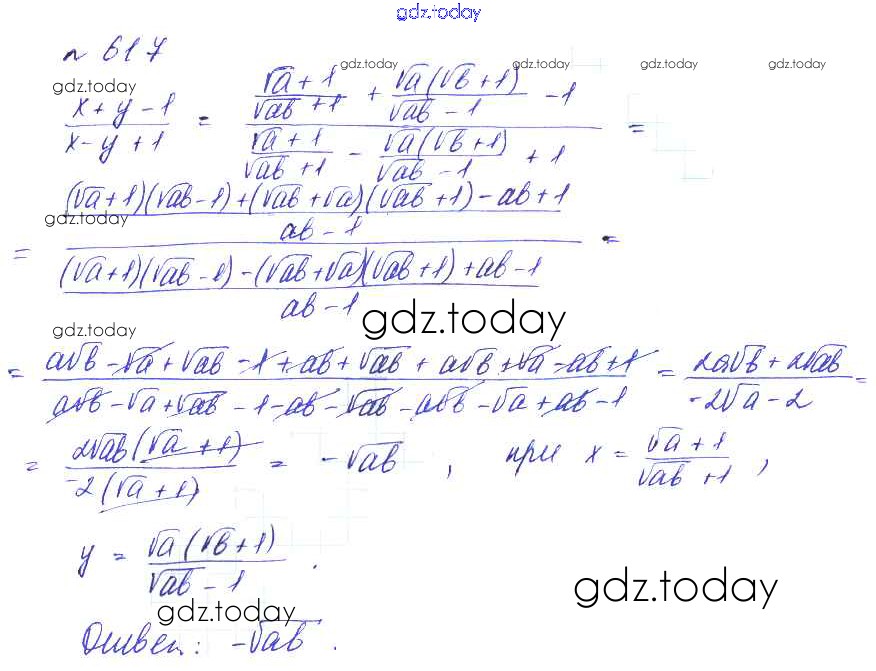 gdz.today
№ 617
gdz.today gdz.today gdz.today gdz.today
(x + y - 1)/(x - y + 1) = ((√a + 1)/(√ab + 1) + √a(√b + 1)/(√ab - 1) - 1)/((√a + 1)/(√ab + 1) - √a(√b + 1)/(√ab - 1) + 1) =
gdz.today
= (((√a + 1)(√ab - 1) + (√ab + √a)(√ab + 1) - ab + 1)/(ab - 1))/(((√a + 1)(√ab - 1) - (√ab + √a)(√ab + 1) + ab - 1)/(ab - 1)) =
gdz.today gdz.today
= (a√b - √a + √ab - 1 + ab + √ab + a√b + √a - ab + 1)/(a√b - √a + √ab - 1 - ab - √ab - a√b - √a + ab - 1) = (2a√b + 2√ab)/(-2√a - 2) =
= 2√ab(√a + 1)/(-2(√a + 1)) = -√ab, при x = (√a + 1)/(√ab + 1),
gdz.today
y = √a(√b + 1)/(√ab - 1).
gdz.today gdz.today
Ответ: -√ab.